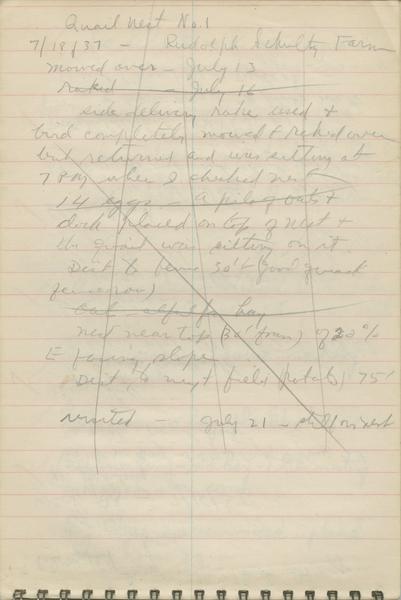 Quail Nest No. 1
7/18/37 - Rudolph Schultz Farm
mowed over - July 13
raked - July 16
side delivery rake used &
bird completely mowed & raked over
but returned and was sitting at
7 PM when I checked nest
14 eggs - A pile of oats &
dock placed on top of nest &
the quail was sitting on it.
Dist to fence 30' + (good quail
fencerow)
oat - alfalfa hay
nest near top (30' from) of 22%
E facing slope
Dist. to next field (potato) 75'
revisited - July 21 - still on nest